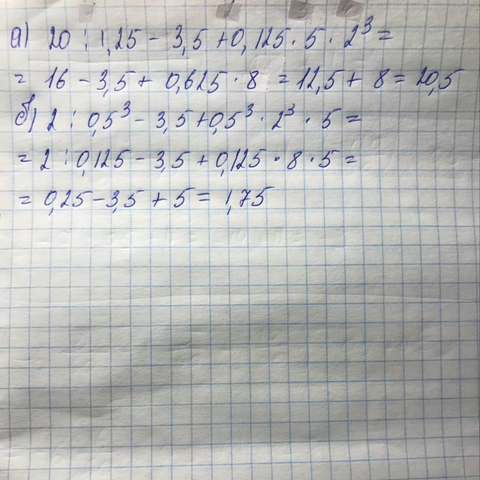 а) 20 : 1,25 - 3,5 + 0,125 · 5 · 2³ =
= 16 - 3,5 + 0,625 · 8 = 12,5 + 8 = 20,5
б) 2 : 0,5³ - 3,5 + 0,5³ · 2³ · 5 =
= 2 : 0,125 - 3,5 + 0,125 · 8 · 5 =
= 0,25 - 3,5 + 5 = 1,75